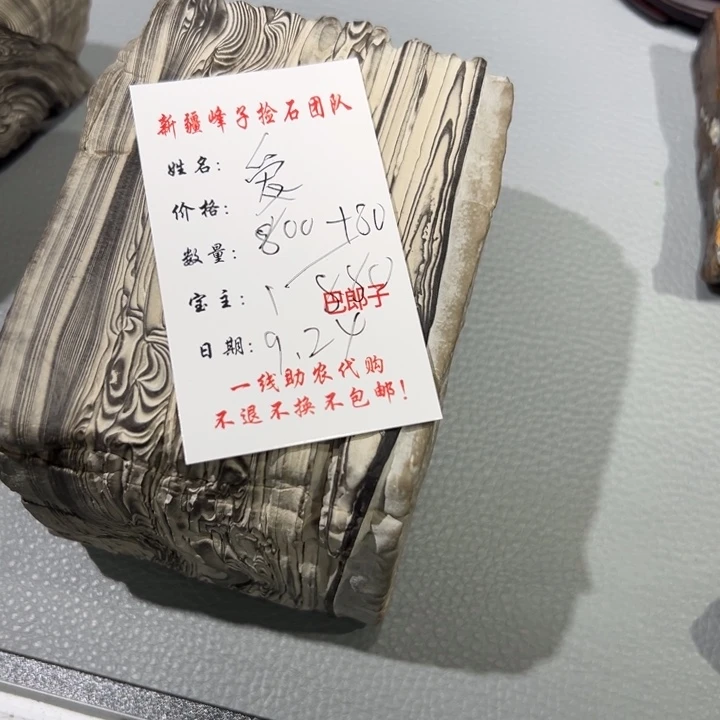 新疆峰子捡石团队
姓名: 爱
价格: 800+80
数量: 1 880
宝主: 巴郎子
日期: 9.24
一线助农代购
不退不换不包邮!